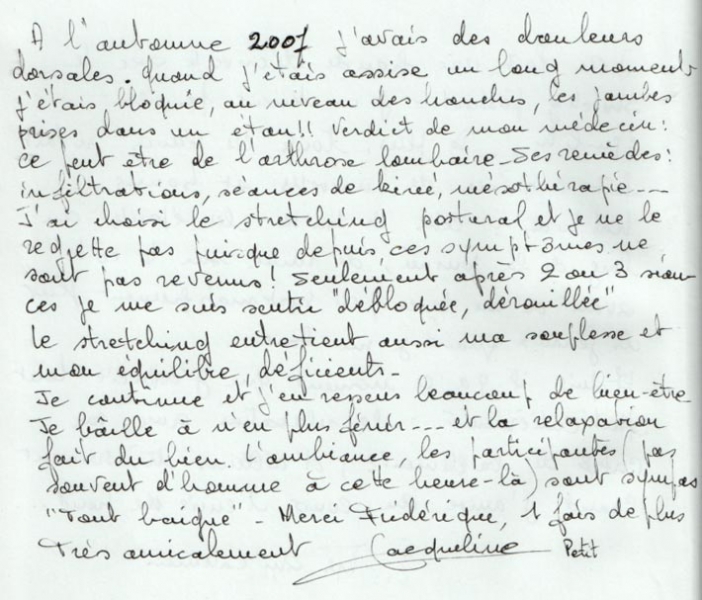 A l'automne 2007 j'avais des douleurs
dorsales. Quand j'étais assise un long moment
j'étais bloquée, au niveau des hanches, les jambes
prises dans un étau!! Verdict de mon médecin:
ce peut être de l'arthrose lombaire_Ses remèdes:
infiltrations, séances de kiné, mésothérapie---
J'ai choisi le stretching postural et je ne le
regrette pas puisque depuis, ces symptômes ne
sont pas revenus! Seulement après 2 ou 3 séan-
ces je me suis sentie "débloquée, dérouillée"
Le stretching entretient aussi ma souplesse et
mon équilibre, déficients_
Je continue et j'en ressens beaucoup de bien-être
Je bâille à n'en plus finir---et la relaxation
fait du bien. L'ambiance, les participantes (pas
souvent d'homme à cette heure-là) sont sympas
"Tout baigne"_ Merci Frédérique, 1 fois de plus
Très amicalement Jacqueline Petit